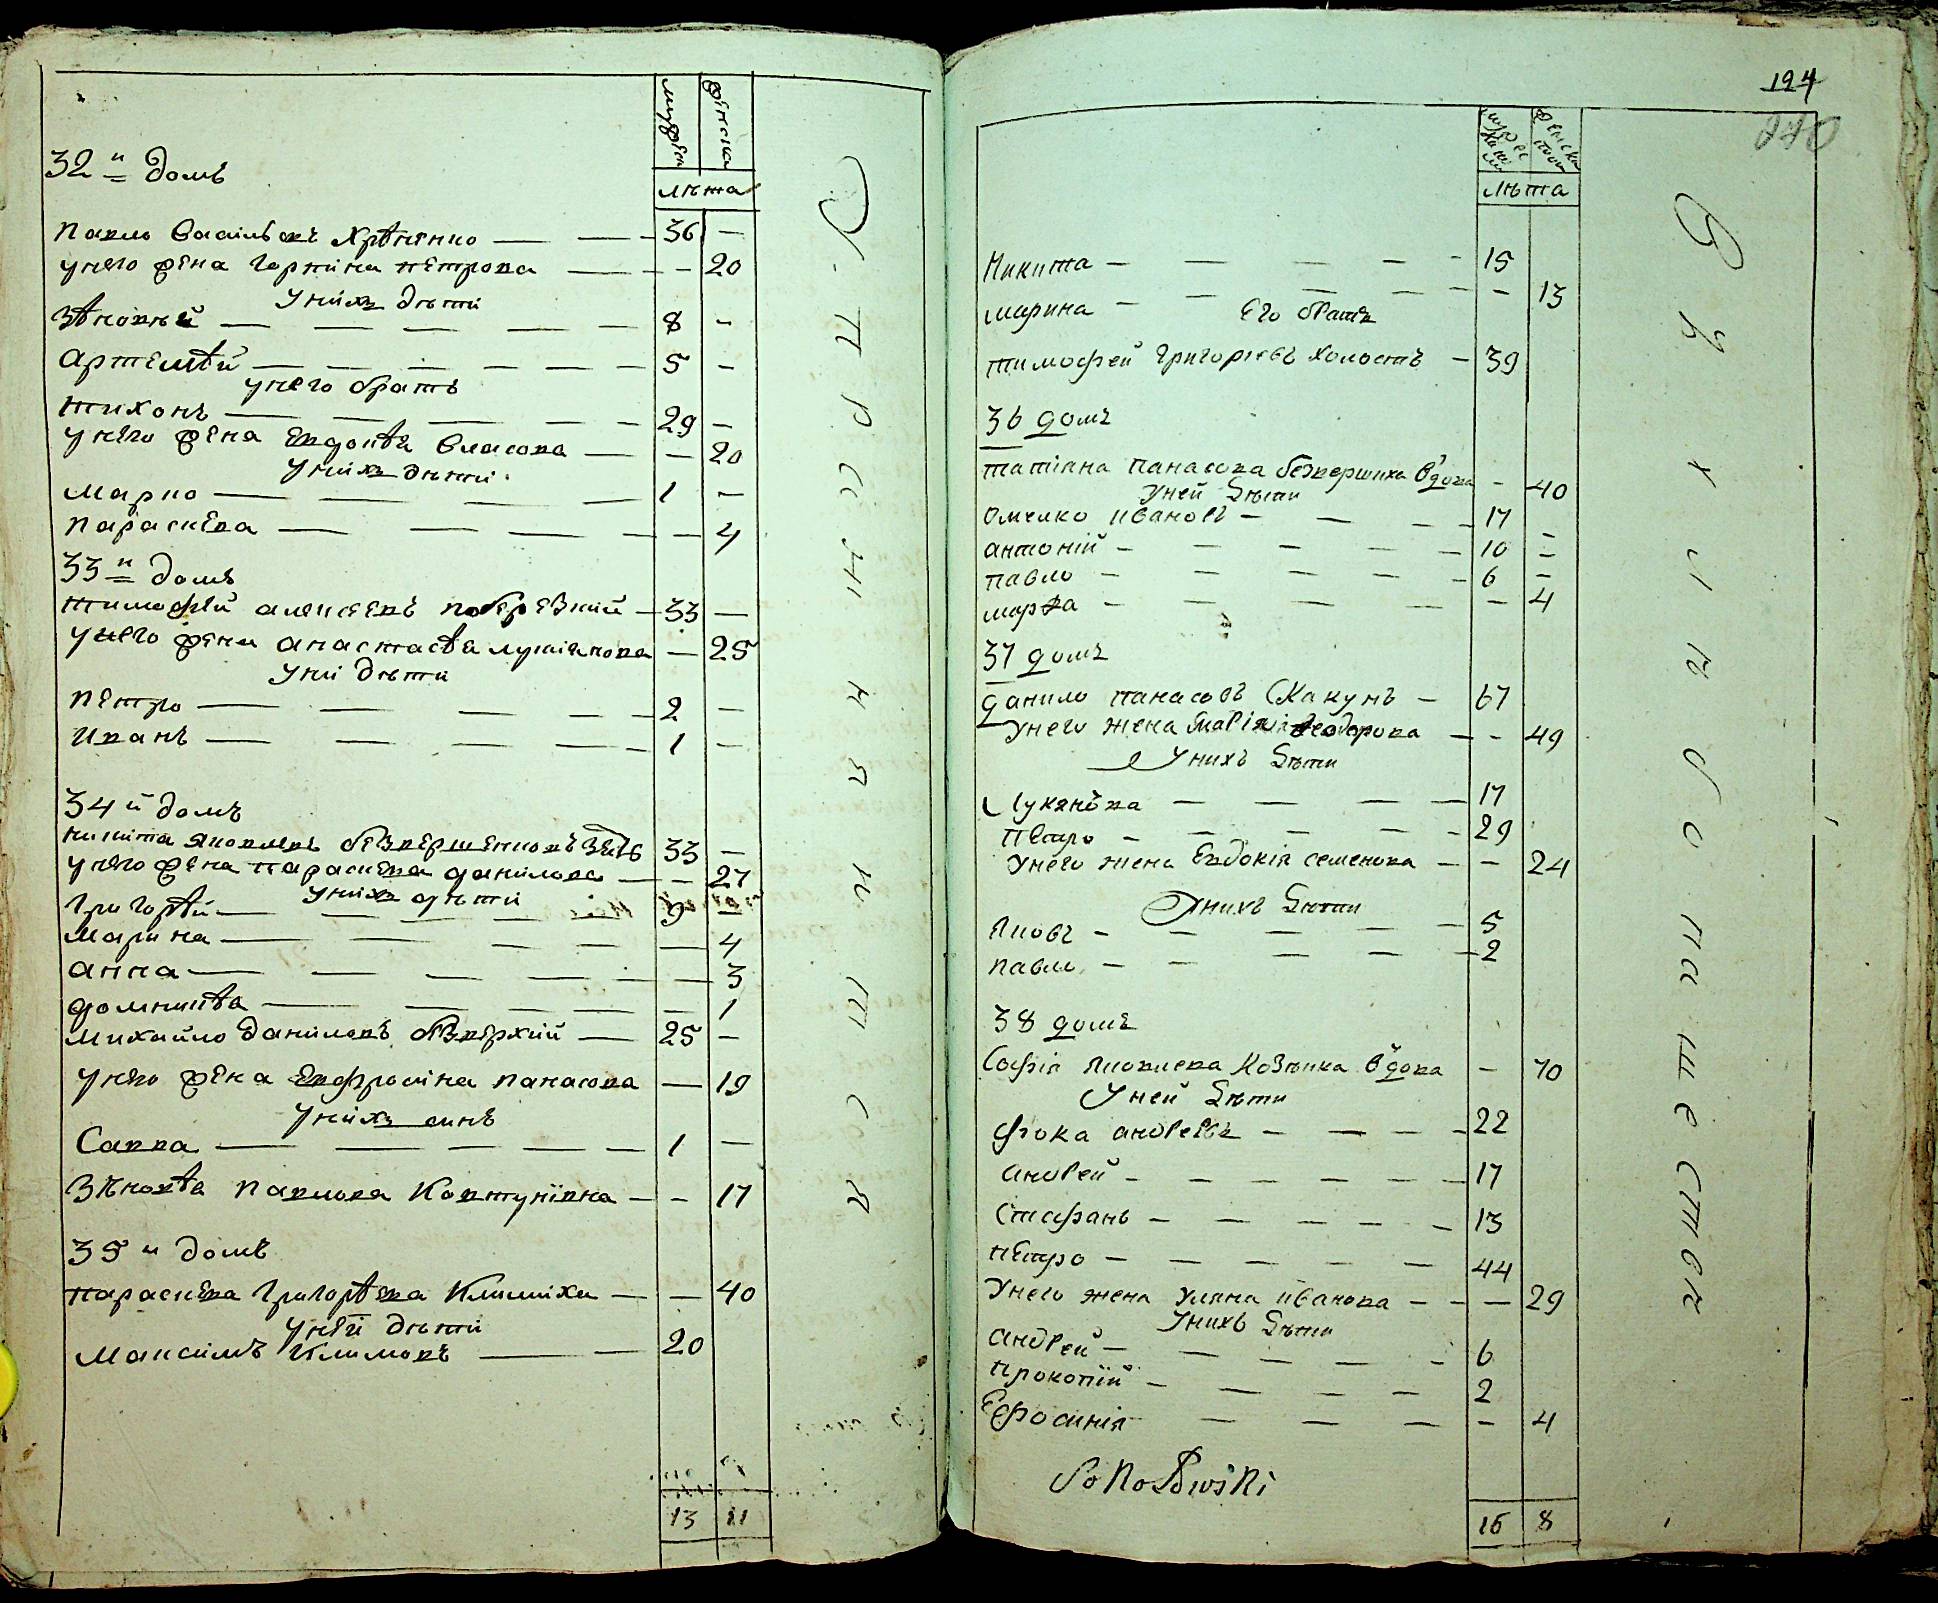 лѣта
32й домъ
Павло Васильевъ Хрѣненко — — 36 —
у него жена Горпина петрова — — 20
у нихъ дѣти
Зѣновѣй — — — — — 8 -
Артемѣй — — — — — 5 -
у него братъ
тихонъ — — — — 29 -
у него жена Евдокѣя Власова — — 20
у нихъ дѣти
марко — — — 1 —
параскева — — — — 4
33й домъ
тимофѣй алексеевъ побережний — 33 —
у него жена анастасѣя лукіянова — 25
у ни дѣти
петро — — — — 2 —
Иванъ — — — — 1 —
34й домъ
никита яковлевъ безвершенковъ зять 33 —
у него жена параскева данилова — — 27
у нихъ дѣти
Григорѣй — — — — 9 —
марина — — — — — 4
анна — — — — — 3
домникѣа — — — — 1
михайло даниловъ безверхій — 25 —
у него жена Евфросина панасова — 19
у нихъ синъ
Савва — — — — — 1 —
Зѣновѣа павлова Ковтунївна — - 17
35й домъ
параскева григорѣева Климиха — — 40
у ней дѣти
максимъ Климовъ — — 20
13 11
124
лѣта
Никита — — — — - 15
марина — — — — - - 13
Его братъ
тимофей григоріевъ холостъ — 39
36 домъ
татіяна панасова безвершиха вдова - 40
у ней дѣти
Омелко ивановъ — — — - 17 -
антоній — — — — — 10 -
павло — — — — - 6 -
марфа — — — — — - 4
37 домъ
данило панасовъ Скакунъ — 67
у него жена Марія феодорова — - 49
у нихъ дѣти
Лукянъ — — — — 17
петро — — — — 29
у него жена Евдокія семенова — - 24
у нихъ дѣти
яковъ — — — — — 5
павло — — — — - 2
38 домъ
Софія яковлева Козѣика вдова - 70
у ней дѣти
Фока андреевъ — — — - 22
андрей — — — — — - 17
Стефанъ — — — — - 13
петро — — — — — — 44
у него жена уляна иванова — - — 29
у нихъ дѣти
андрей — — — — — - 6
прокопій — — — — 2
Ефросинія — — — - 4
Sokołowski
16 8